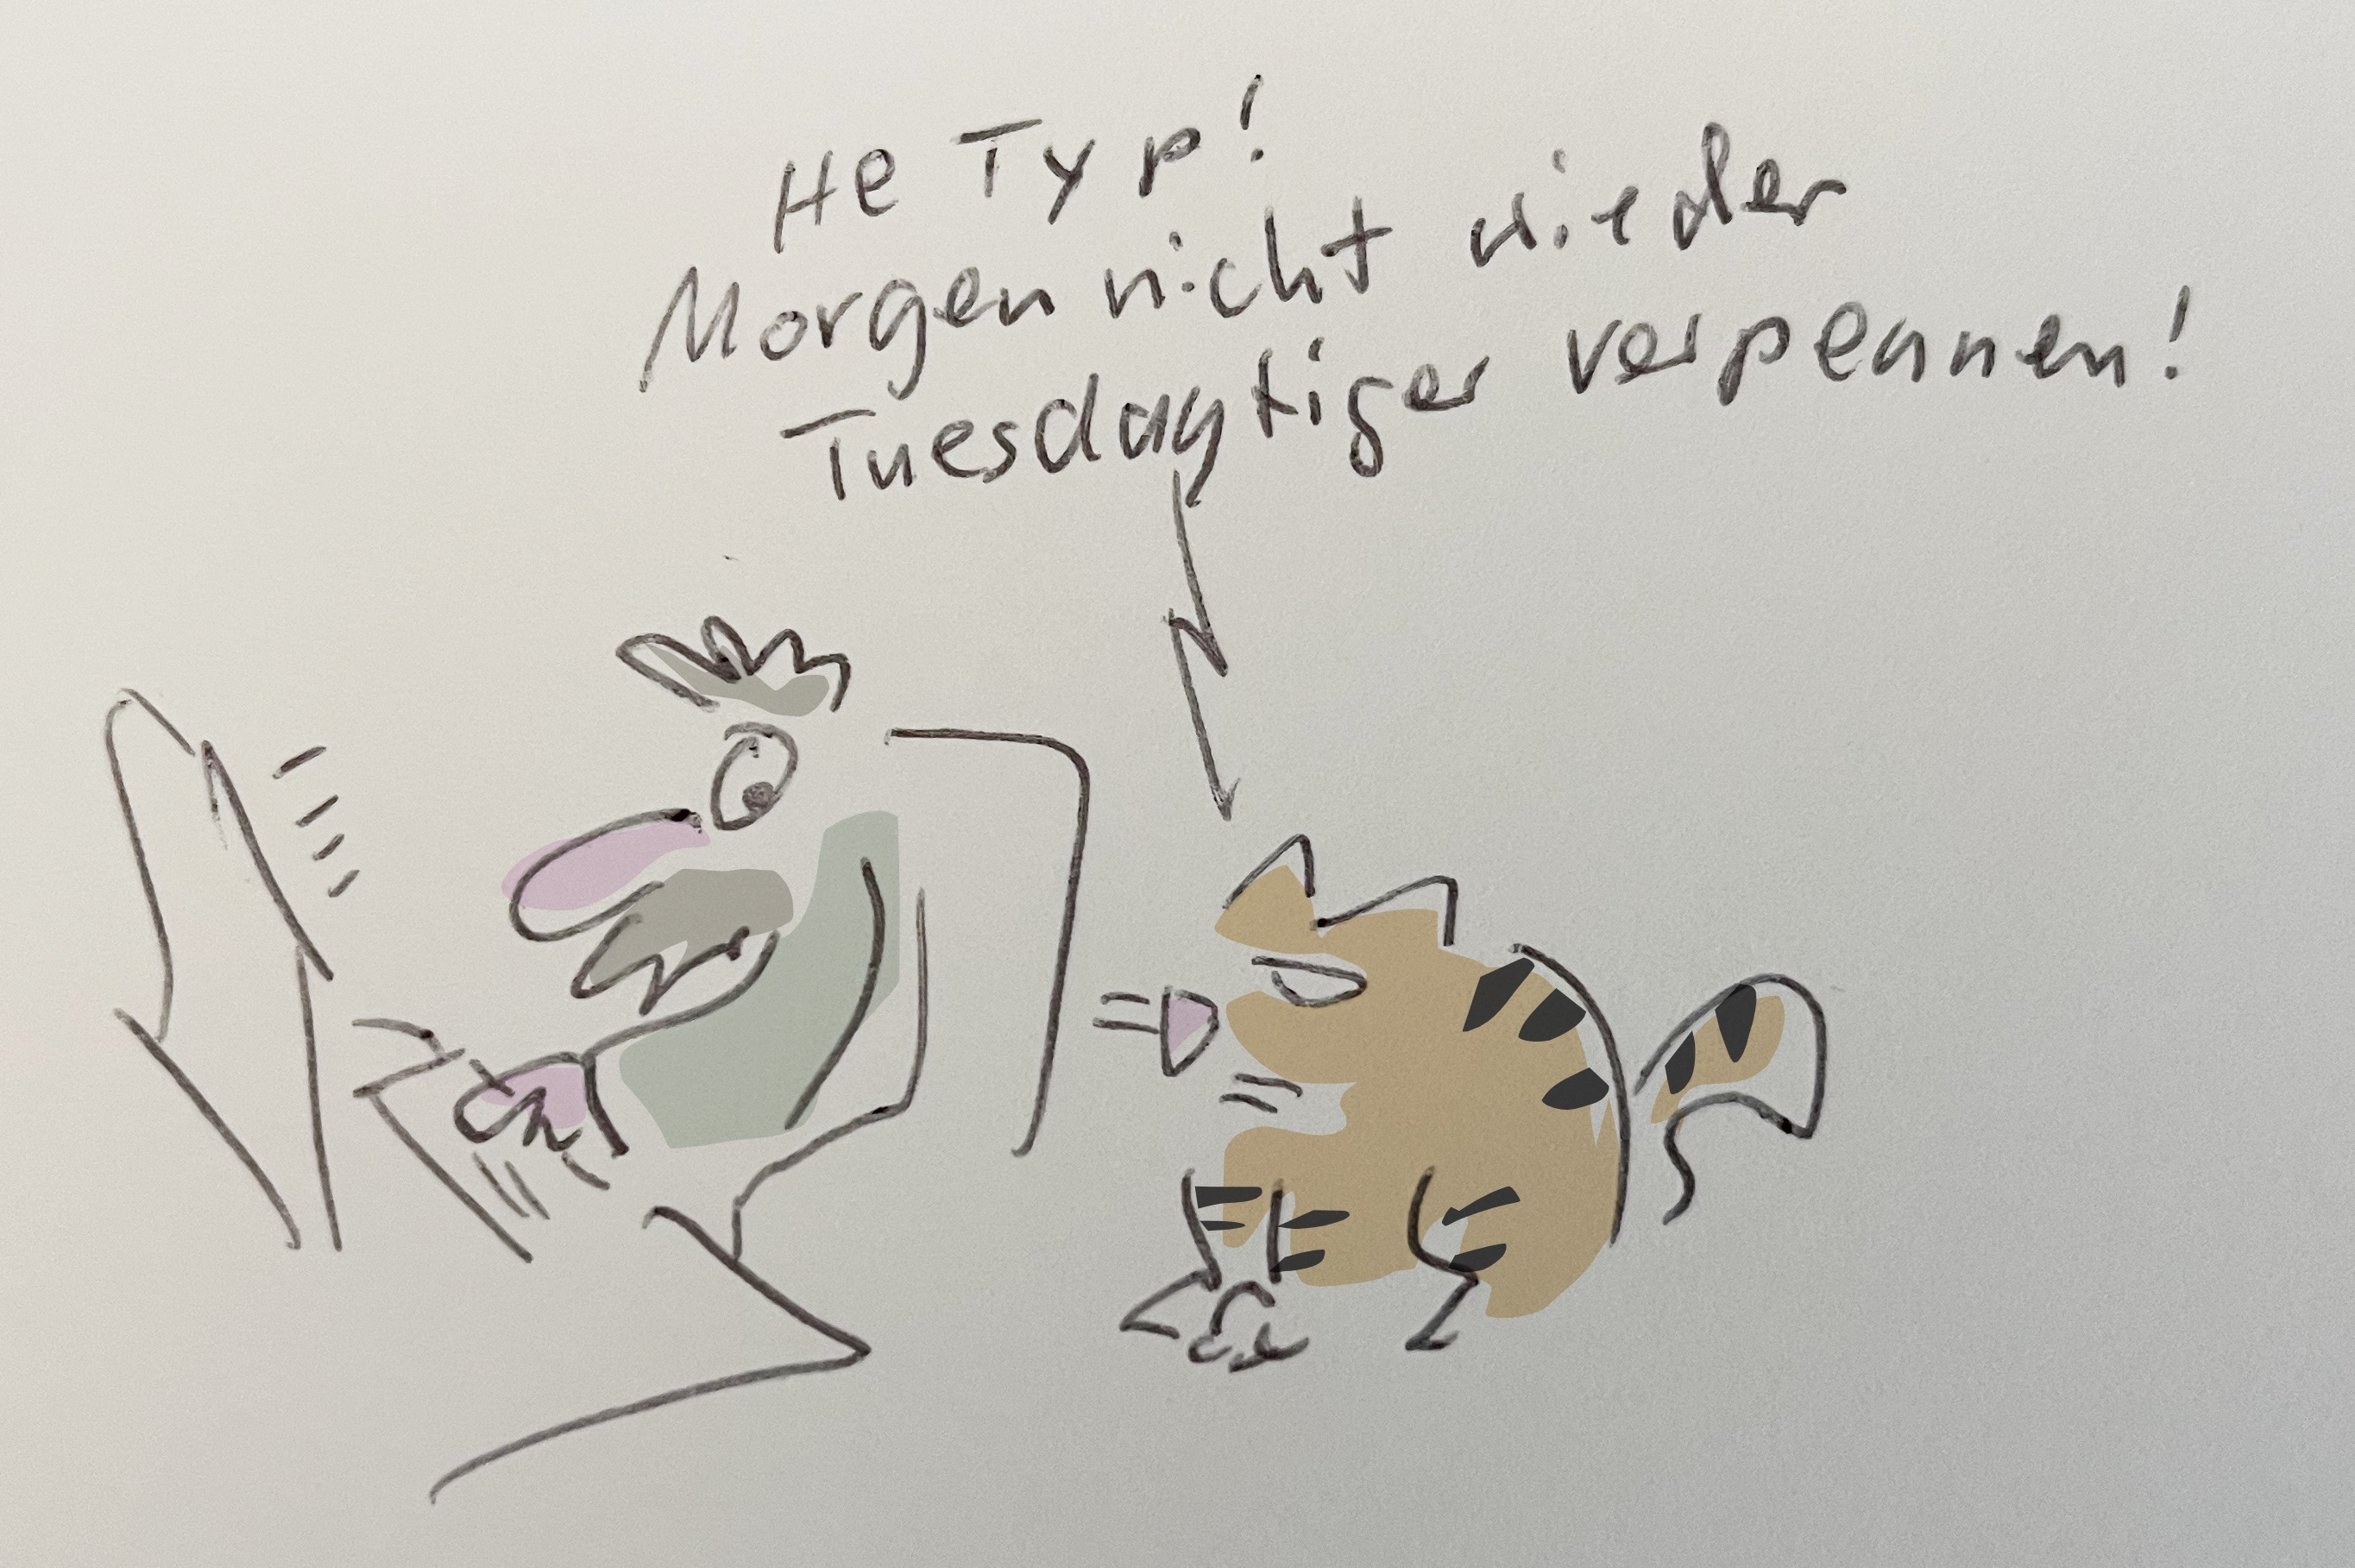 He Typ!
Morgen nicht wieder
Tuesdaytiger verpennen!